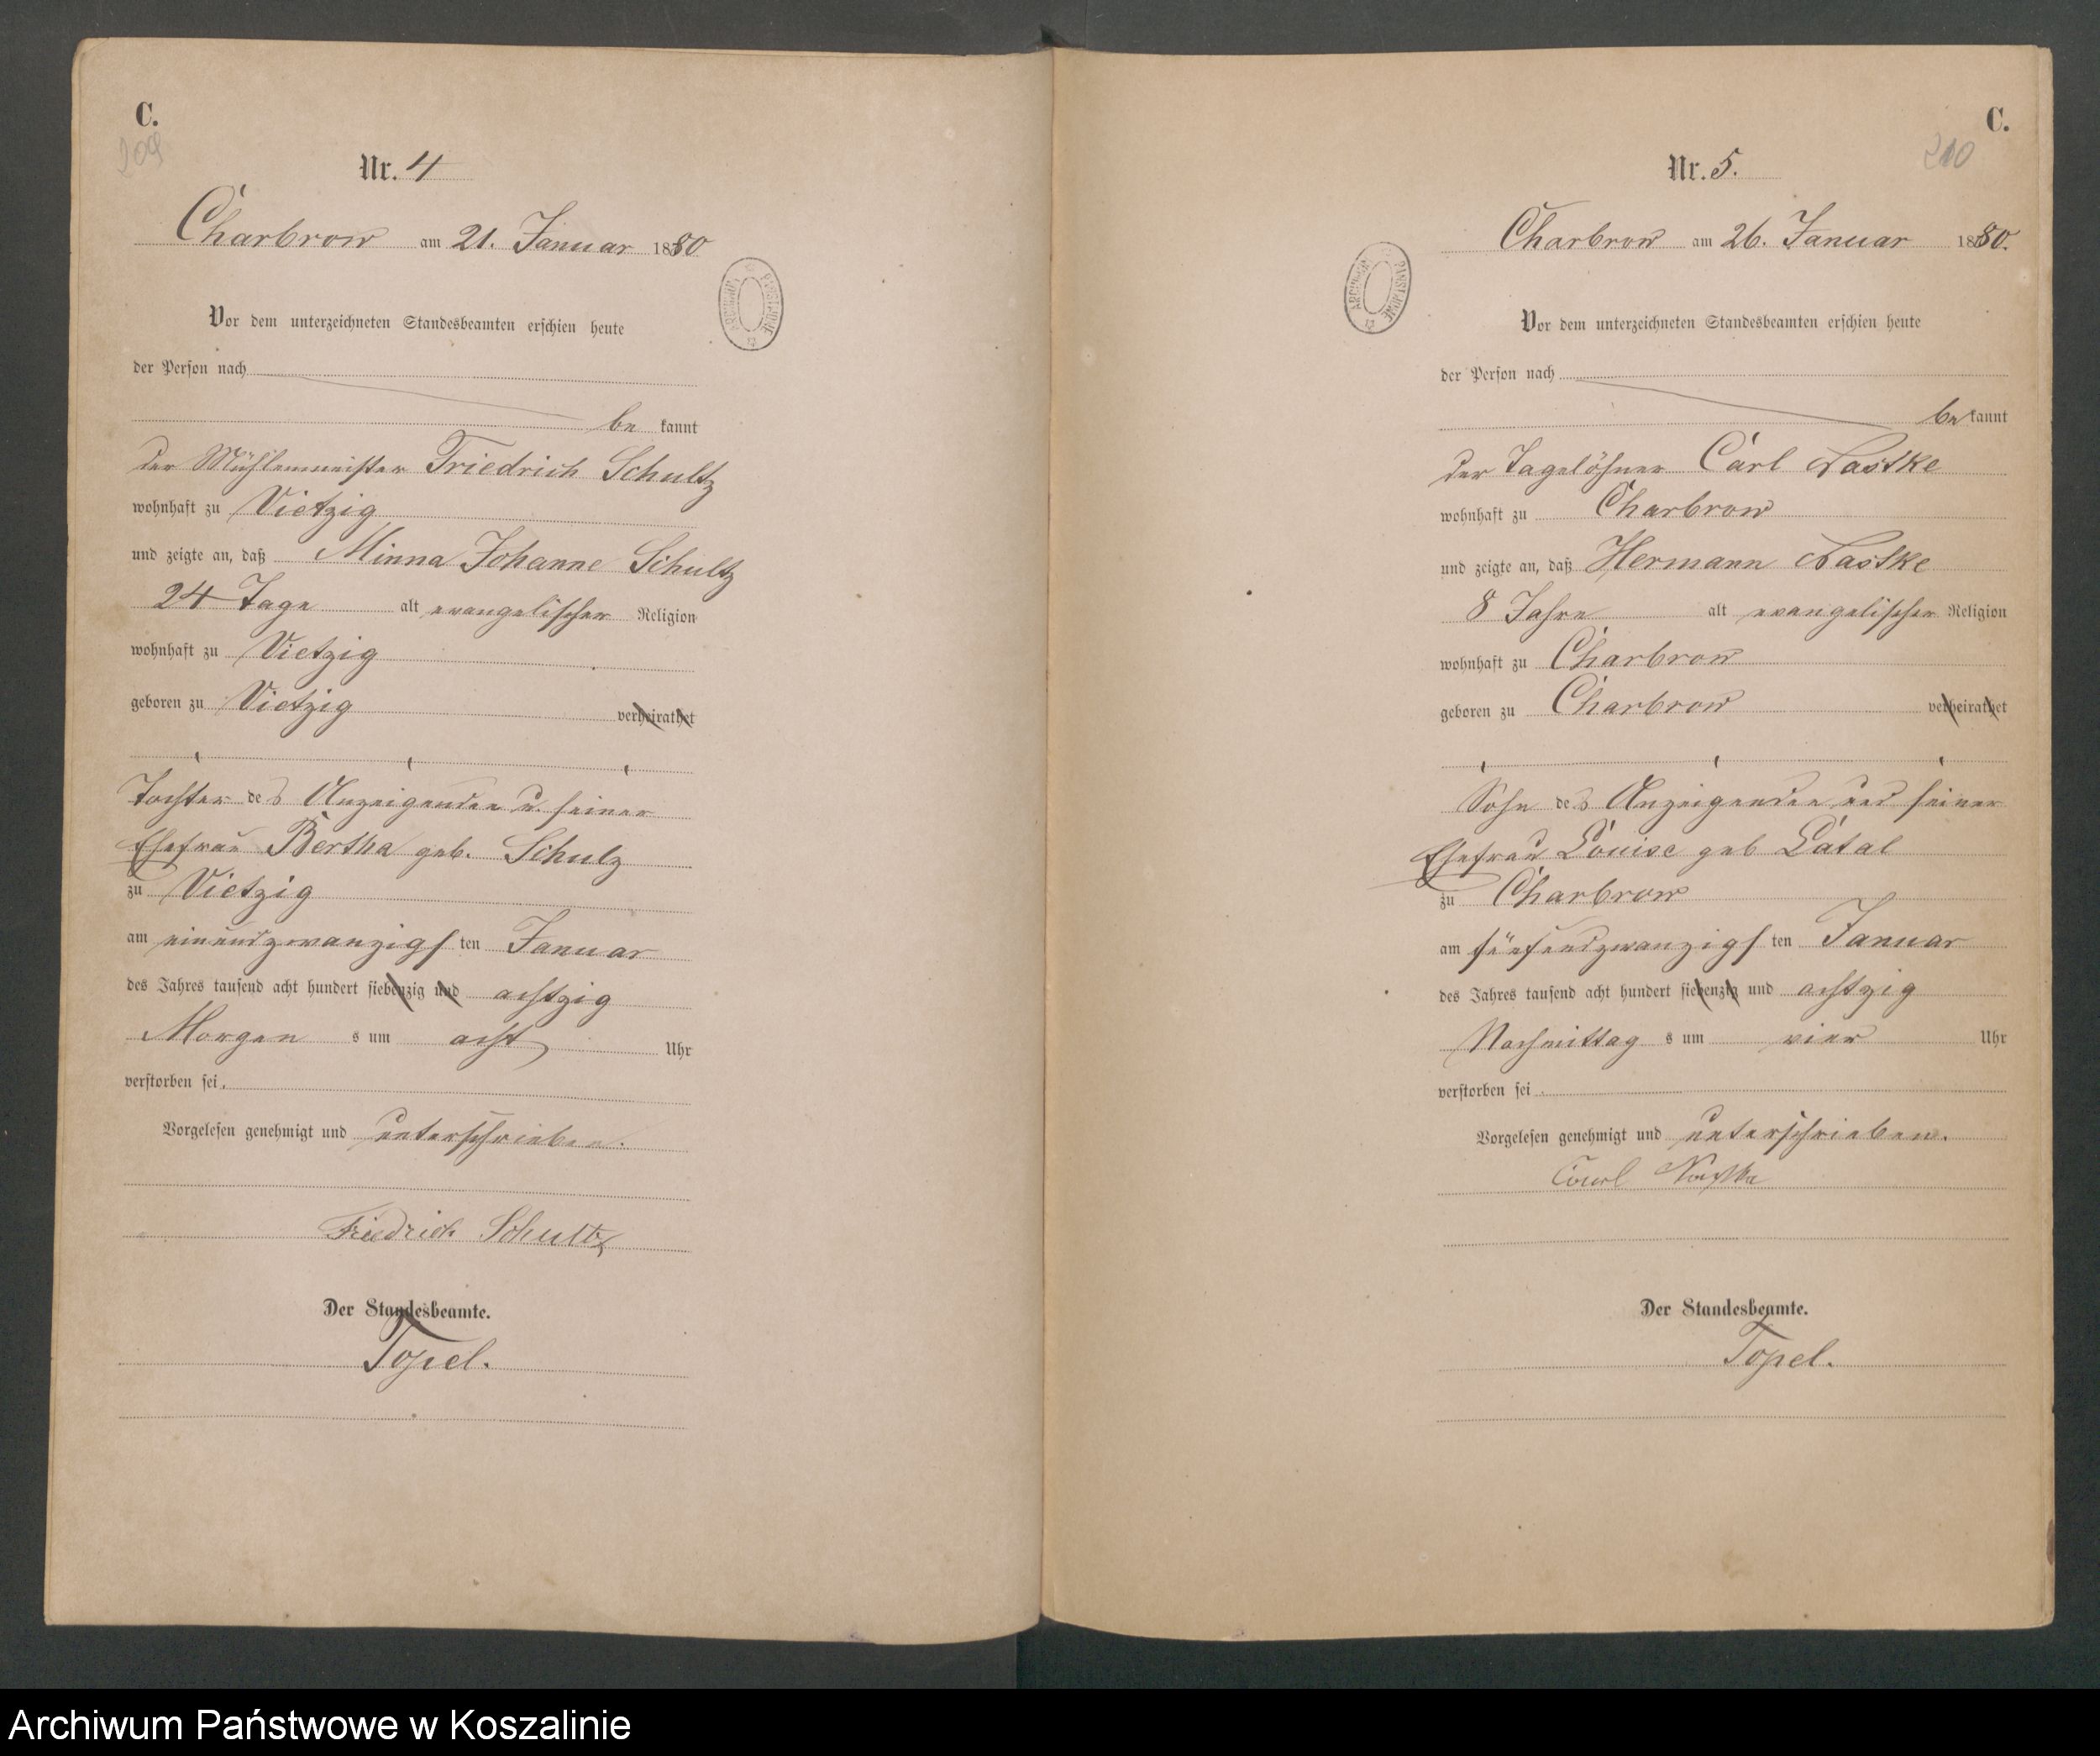 C.
209
Nr. 4
Charbrow am 21. Januar 1880
Vor dem unterzeichneten Standesbeamten erschien heute
der Person nach
be kannt
der Mühlenmeister Friedrich Schultz
wohnhaft zu Vietzig
und zeigte an, daß Minna Johanne Schultz
24 Tage alt evangelischer Religion
wohnhaft zu Vietzig
geboren zu Vietzig verheirathet
Tochter des Anzeigenden u. seiner
Ehefrau Bertha geb. Schulz
zu Vietzig
am einundzwanzigsten Januar
des Jahres tausend acht hundert siebenzig und achtzig
Morgens um acht Uhr
verstorben sei.
Vorgelesen genehmigt und unterschrieben.
Friedrich Schultz
Der Standesbeamte.
Topel.
C.
210
Nr. 5.
Charbrow am 26. Januar 1880.
ARCHIWUM PAŃSTWOWE
Vor dem unterzeichneten Standesbeamten erschien heute
der Person nach
be kannt
der Tagelöhner Carl
wohnhaft zu Charbrow
und zeigte an, daß Hermann
8 Jahre alt evangelischer Religion
wohnhaft zu Charbrow
geboren zu Charbrow verheirathet
Sohn des Anzeigenden und seiner
Ehefrau Louise geb Latal
zu Charbrow
am fünfundzwanzigsten Januar
des Jahres tausend acht hundert siebenzig und achtzig
Nachmittags um vier Uhr
verstorben sei.
Vorgelesen genehmigt und unterschrieben.
Carl
Der Standesbeamte.
Topel.
Archiwum Państwowe w Koszalinie